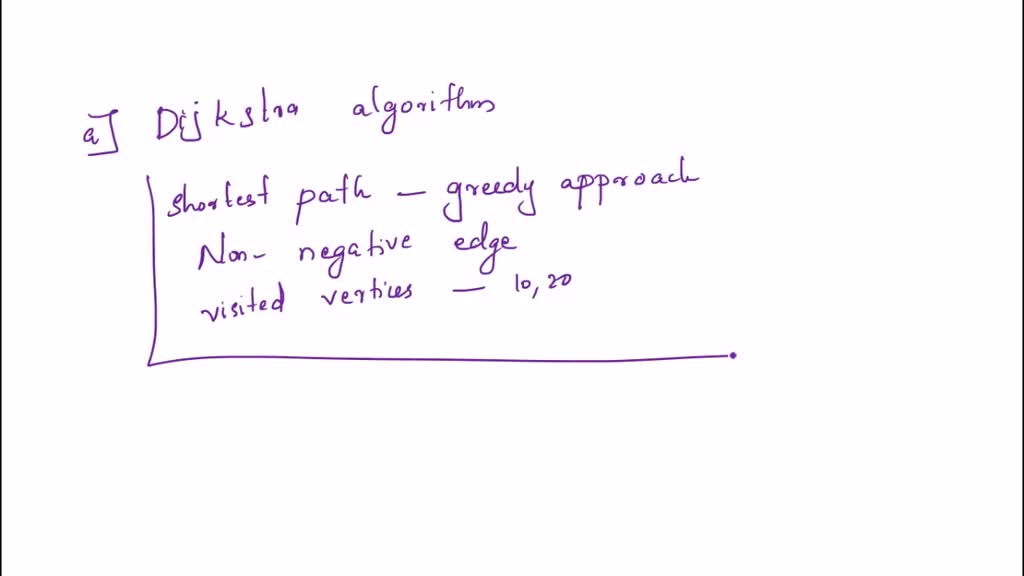 a] Dijkstra algorithms
shortest path – greedy approach
Non- negative edge
visited vertices – 10, 20